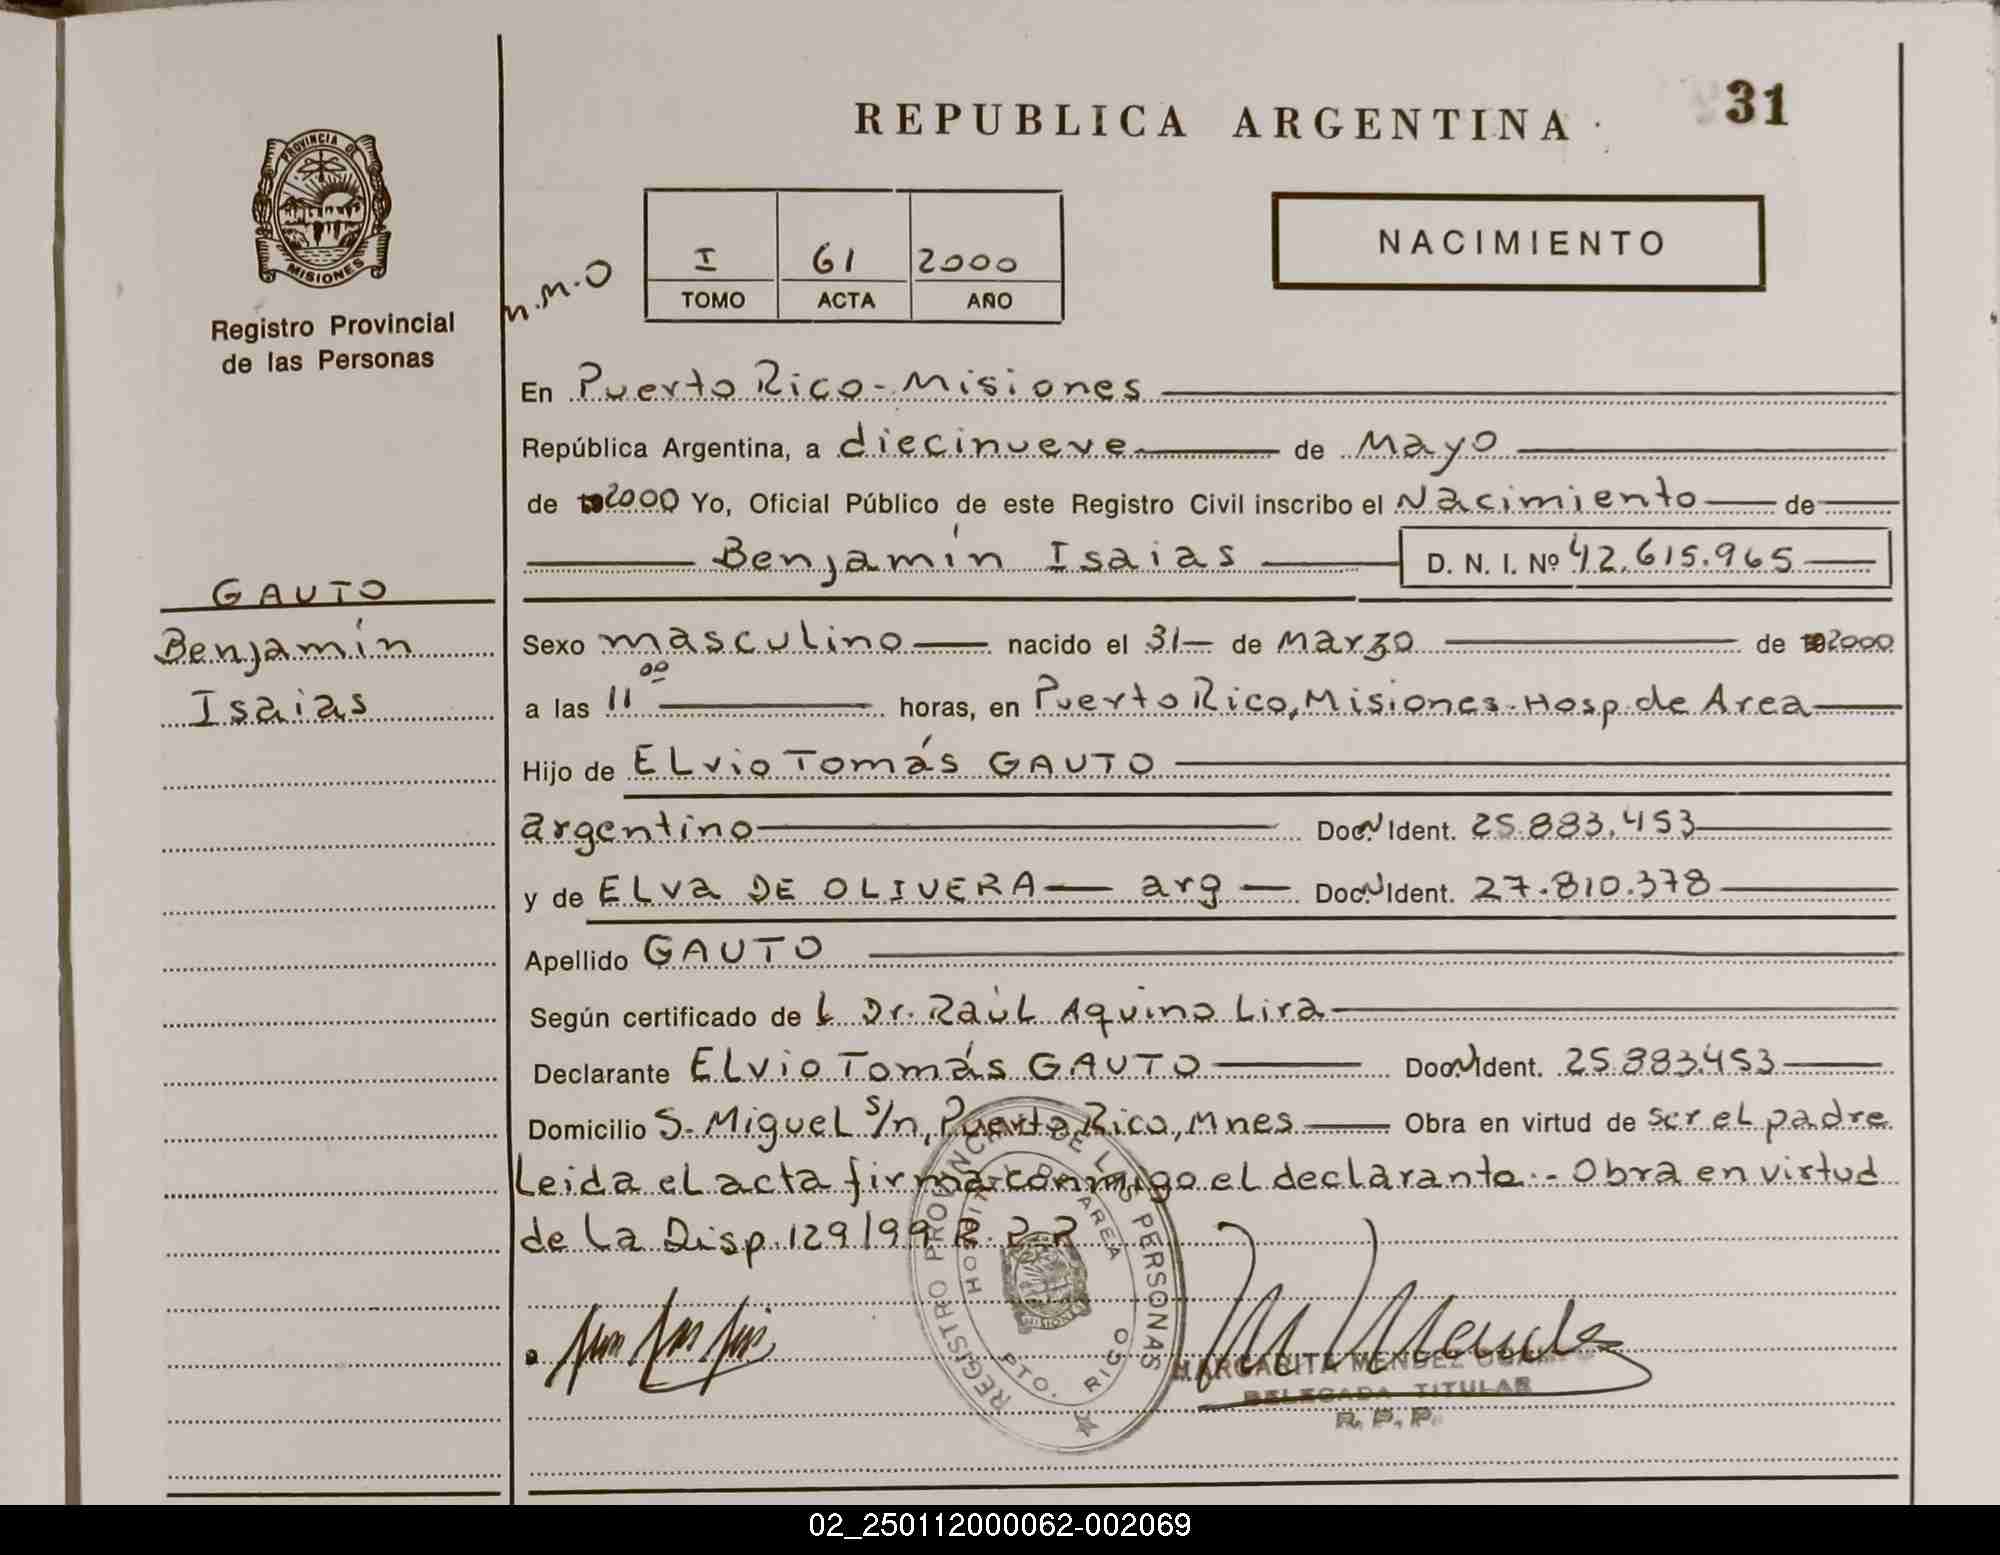 REPUBLICA ARGENTINA
31
PROVINCIA DE
MISIONES
Registro Provincial
de las Personas
NACIMIENTO
I 61 2000
TOMO ACTA AÑO
n.m.o
En Puerto Rico - Misiones
República Argentina, a diecinueve de Mayo
de 2000 Yo, Oficial Público de este Registro Civil inscribo el Nacimiento de
Benjamín Isaias D. N. I. Nº 42.615.965
GAUTO
Benjamín
Isaias
Sexo masculino nacido el 31 de Marzo de 2000
a las 11 00 horas, en Puerto Rico, Misiones - Hosp. de Area
Hijo de ELvio Tomás GAUTO
argentino Doc. N Ident. 25.883.453
y de ELva DE OLIVERA arg Doc. N Ident. 27.810.378
Apellido GAUTO
Según certificado de L Dr. Raúl Aquino Lira
Declarante ELvio Tomás GAUTO Doc. N Ident. 25.883.453
Domicilio S. Miguel s/n, Puerto Rico, Mnes Obra en virtud de ser el padre
Leida el acta firma conmigo el declarante.- Obra en virtud
de La Disp. 129/99 R.P.P
REGISTRO PROVINCIAL DE LAS PERSONAS
HOSPITAL DE AREA
MISIONES
PTO. RICO
MARGARITA MENDEZ
DELEGADA TITULAR
R. P. P.
02_250112000062-002069